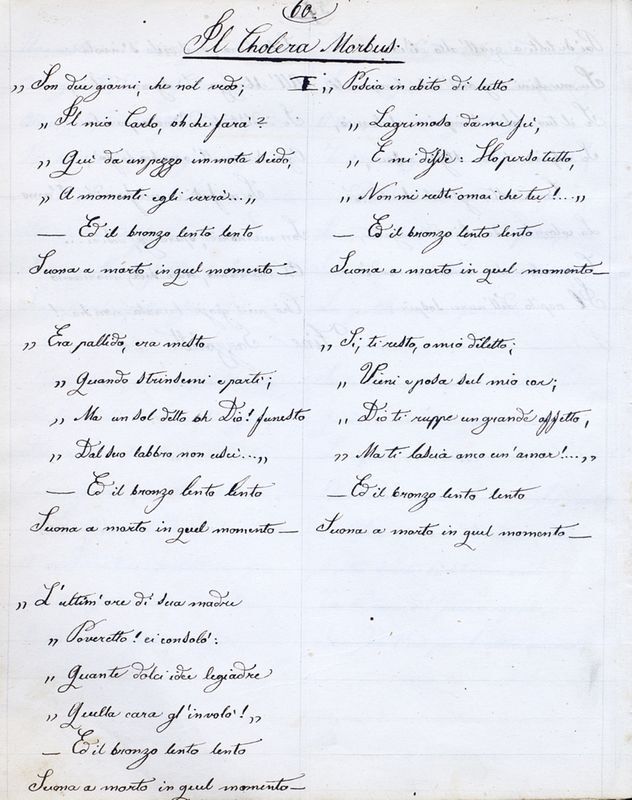 60.
Il Cholèra Morbus.
I
„ Son due giorni, che nol vedo;
„ Il mio Carlo, oh che farà?
„ Quì da un pezzo immota seido,
„ A momenti egli verrà...„
— Ed il bronzo lento lento
Suona a morto in quel momento —
„ Era pallido, era mesto
„ Quando strinsemi e partì;
„ Ma un sol detto oh Dio! funesto
„ Dal suo labbro non uscì...„
— Ed il bronzo lento lento
Suona a morto in quel momento —
„ L'ultim'ore di sua madre
„ Poveretto! ei consolò:
„ Quante dolci idee leggiadre
„ Quella cara gl'involò!„
— Ed il bronzo lento lento
Suona a morto in quel momento —
„ Poscia in abito di lutto
„ Lagrimoso da me fu,
„ E mi disse: Ho perso tutto,
„ Non mi resti omai che tu!...„
— Ed il bronzo lento lento
Suona a morto in quel momento —
„ Sì, ti resto, o mio diletto;
„ Vieni e posa sul mio cor;
„ Dio ti ruppe un grande affetto,
„ Ma ti lascia anco un'amor!...„
— Ed il bronzo lento lento
Suona a morto in quel momento —